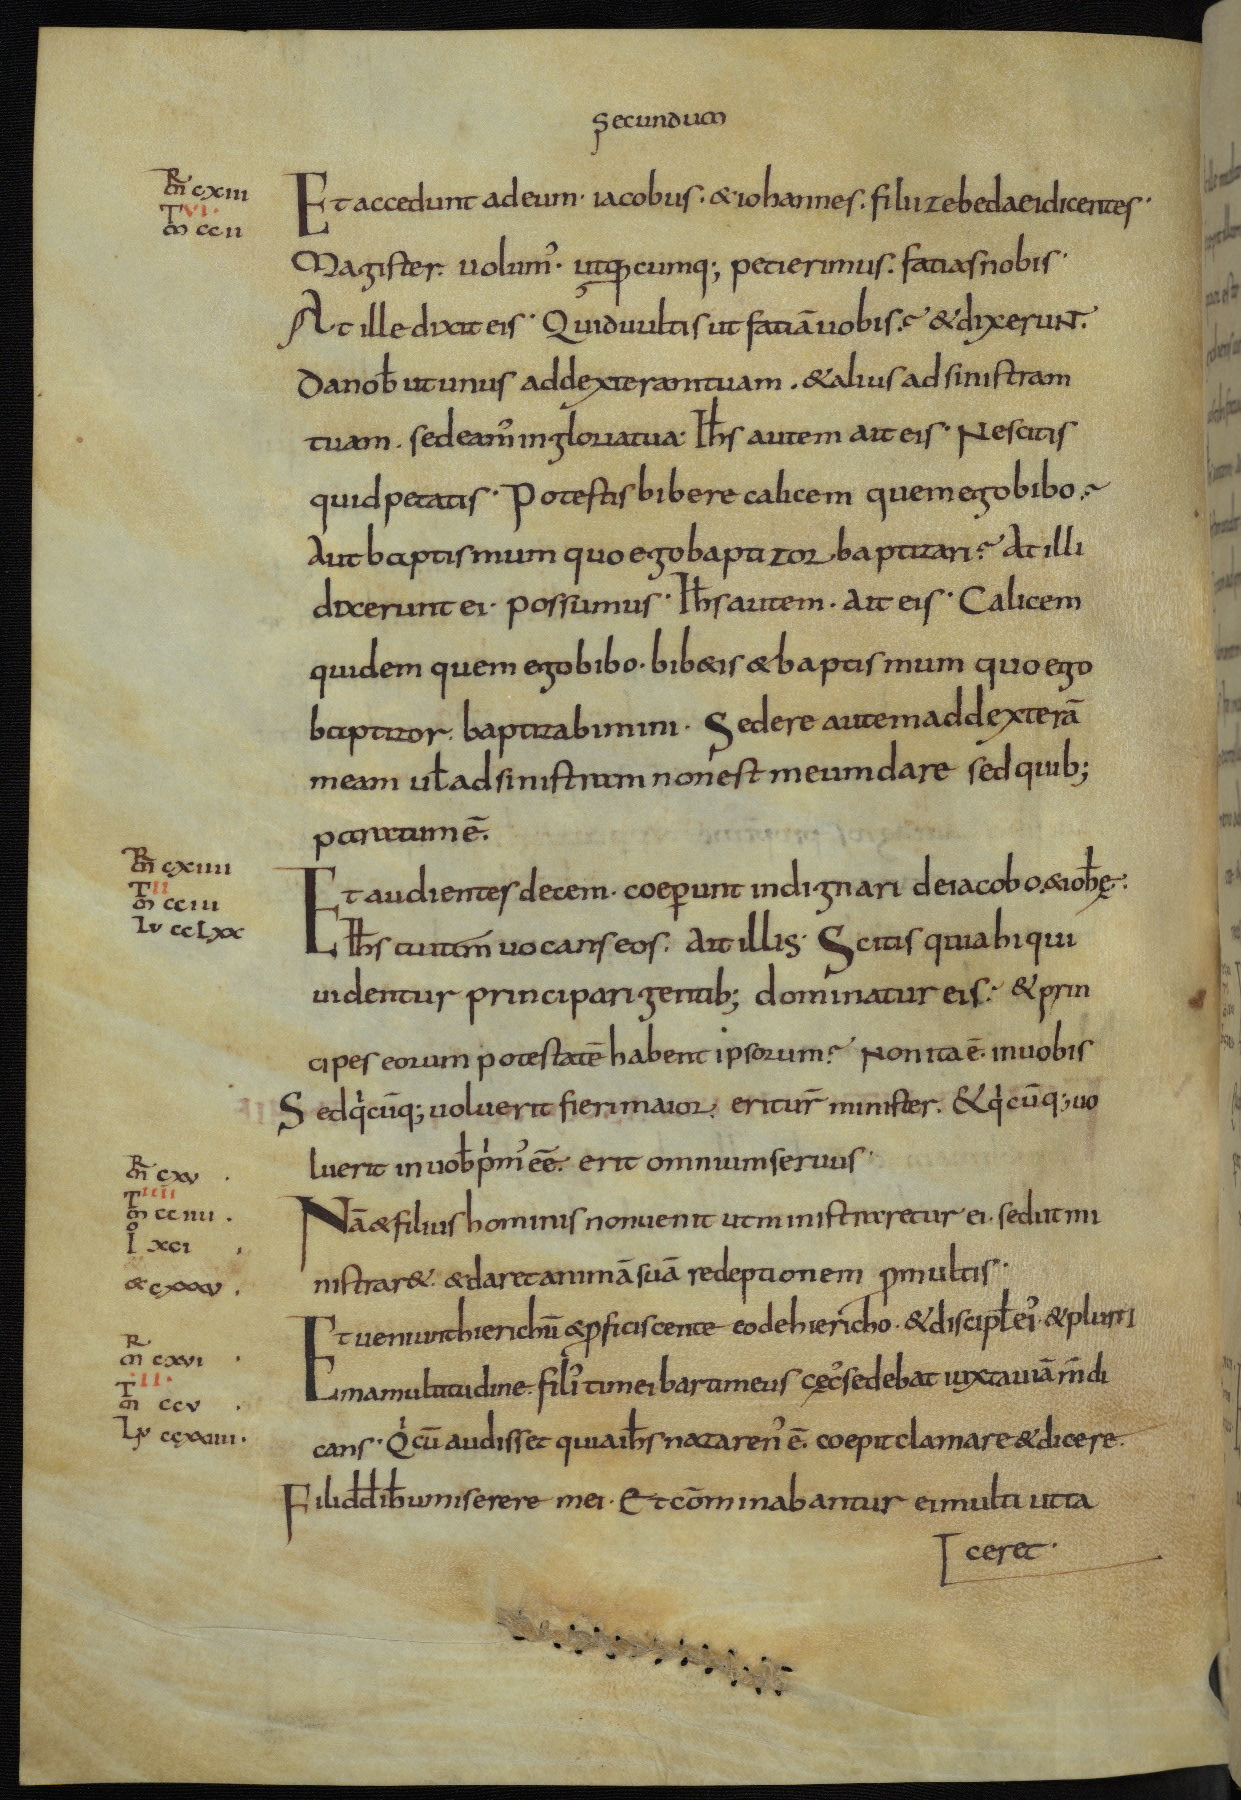 Secundum
R
m̄ cxiii
T VI·
m̄ ccii
Et accedunt ad eum· iacobus· & iohannes· filii zebedaei dicentes·
Magister· uolum᾿· ut quodcumq; petierimus· facias nobis·
At ille dixit eis· Quid uultis ut faciā uobis? & dixerunt·
Da nob̄ ut unus ad dexteram tuam· & alius ad sinistram
tuam· sedeam᾿ in gloria tua· Ih̄s autem ait eis· Nescitis
quid petatis· Potestis bibere calicem quem ego bibo?
Aut baptismum quo ego baptizor baptizari? At illi
dixerunt ei· possumus· Ih̄s autem· ait eis· Calicem
quidem quem ego bibo· bib&is & baptismum quo ego
baptizor· baptizabimini· Sedere autem ad dexterā
meam uł ad sinistram non est meum dare sed quib;
paratum ē·
R
m̄ cxiiii
T II
m̄ cciii
Lu cclxx
Et audientes decem· coeperunt indignari de iacobo & ioh̄ę·
Ih̄s autem uocans eos· ait illis· Scitis quia hi qui
uidentur principari gentib; dominatur eis· & prin
cipes eorum potestatē habent ipsorum· Non ita ē· in uobis
Sed qicūq; uoluerit fieri maior· erit ur̄ minister· & qicūq; uo
luerit in uob̄ prim᾿ eē· erit omnium seruus·
R
m̄ cxv
T IIII
m̄ cciiii
Io xci
& cxxxv
Nā & filius hominis non uenit ut ministraretur ei· sed ut mi
nistrar&· & daret animā suā redeptionem p multis·
R
m̄ cxvi
T II
m̄ ccv
Lu ccxxiiii
Et ueniunt hierichū & pficiscente eo de hiericho· & discipł ei᾿ & pluri
ma multitudine· fili᾿ timei bartimeus cęc᾿ sedebat iuxta uiā m̄di
cans· Qi cū audisset quia ih̄s nazaren᾿ ē· coepit clamare & dicere·
Fili dd̄ ih̄u miserere mei· Et cōminabantur ei multi ut ta
ceret·